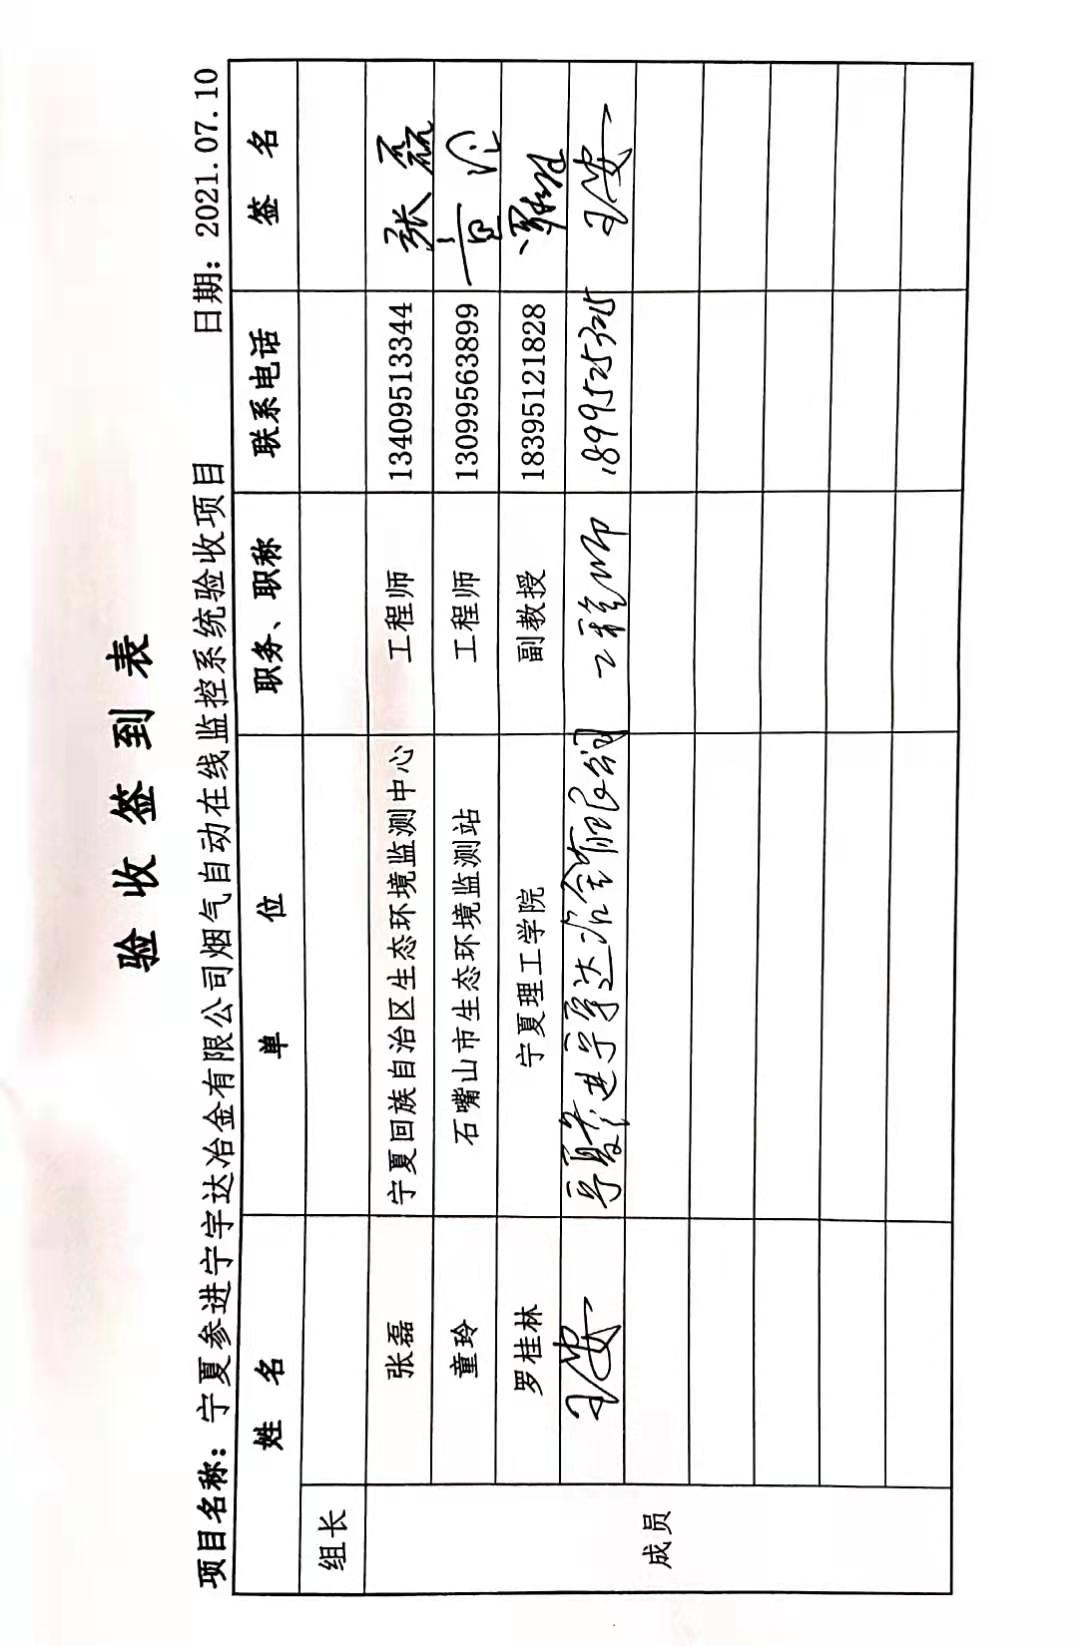 验收签到表
项目名称：宁夏参进宁宇达冶金有限公司烟气自动在线监控系统验收项目 日期：2021.07.10
姓名 单位 职务、职称 联系电话 签名
组长
成员
张磊 宁夏回族自治区生态环境监测中心 工程师 13409513344 张磊
童玲 石嘴山市生态环境监测站 工程师 13099563899 童玲
罗桂林 宁夏理工学院 副教授 18395121828
宁夏参进宁宇达冶金有限公司 工程师 18995253215